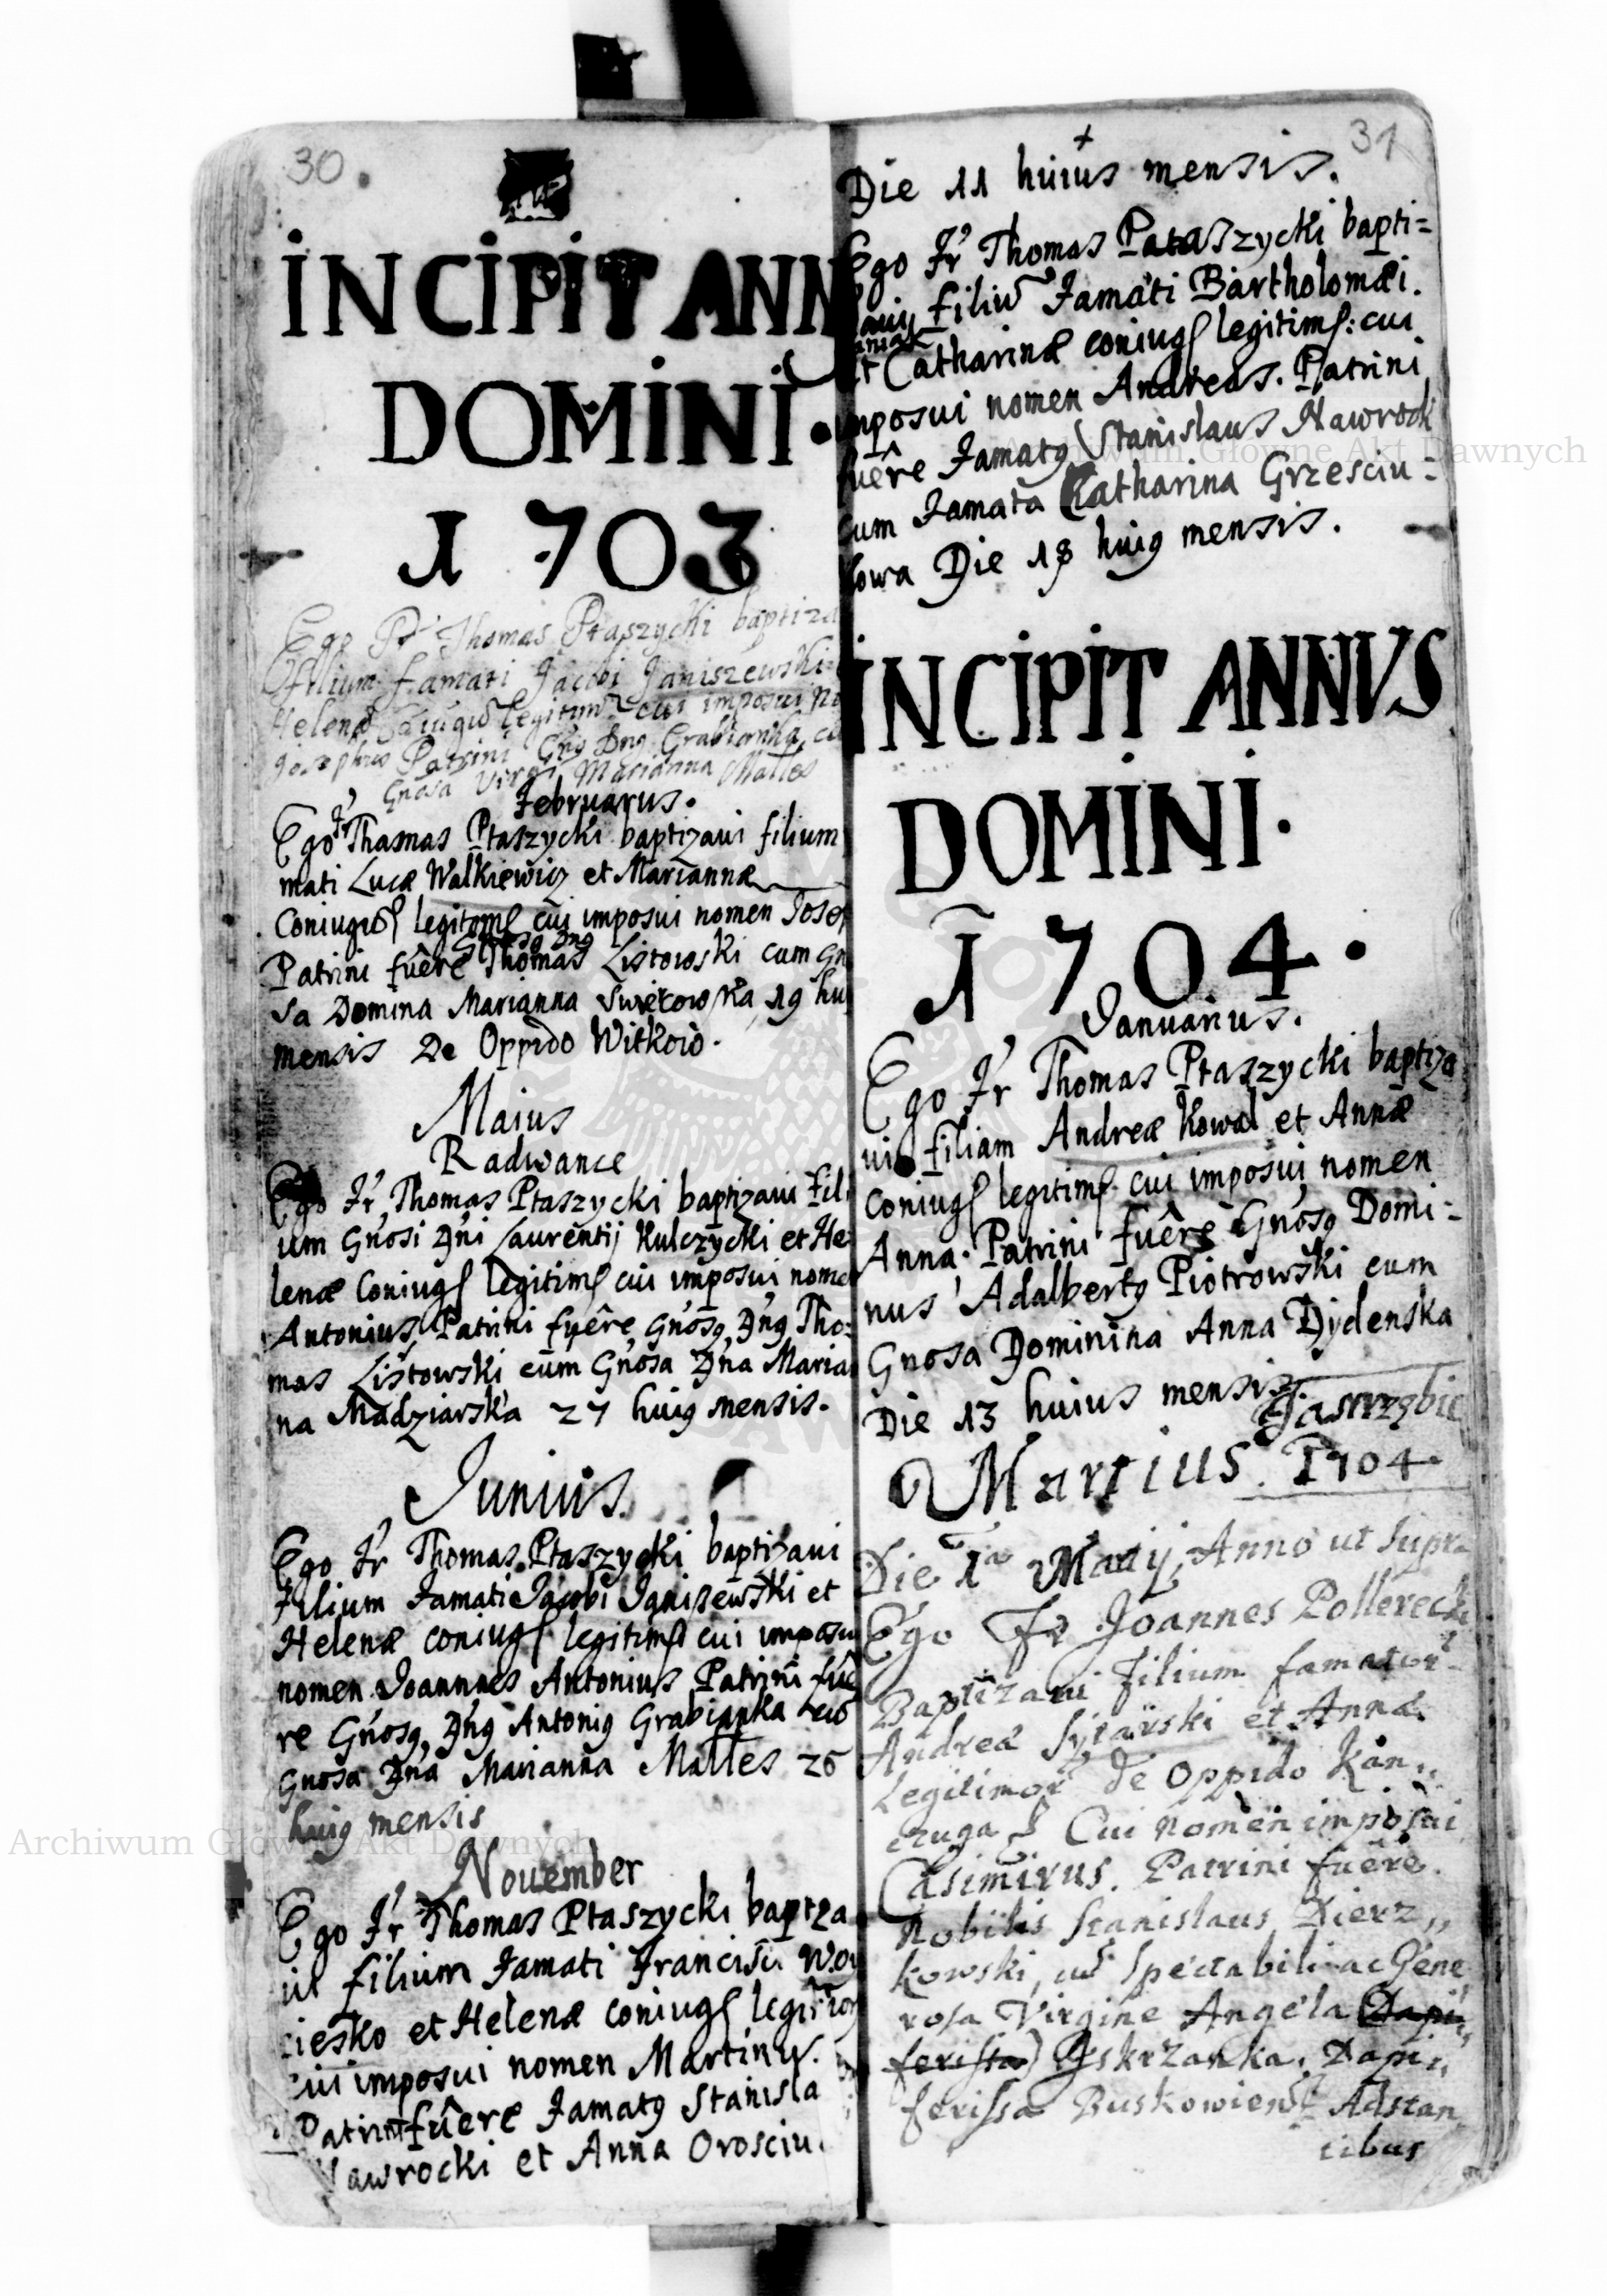 30
INCIPIT ANN
DOMINI.
1703
Ego Fr Thomas Ptaszycki baptiza
filium famati Jacobi Janiszewski
Helenæ legitim cui imposui
Patrini Gnsꝯ Dnꝯ Grabianka
Gnosa Virgi Marianna Malles
Februarus.
Ego Fr Thamas Ptaszycki baptizaui filium
mati Lucæ Walkiewicz et Mariannæ
Coniugū legitomꝭ cui imposui nomen Josep
Gnosꝯ Dnꝯ
Patrini fuêre Thomas Listowski cum Gn
sa Domina Marianna Swiẽtowska 19 hu
mensis De Oppido Witkow.
Maius
Radwance
Ego Fr Thomas Ptaszycki baptizaui Fili
um Gnosi Dni Laurentij Kulczycki et He
lenæ Coniugꝭ legitimꝭ cui imposui nome
Antonius, Patrini fuêre Gnosꝯ Dnꝯ Tho=
mas Listowski cum Gnosa Dna Maria
na Madziarska 27 huiꝯ mensis.
Junius.
Ego Fr Thomas Ptaszycki baptizaui
Filium Famati Jacobi Janiszewski et
Helenæ coniugꝭ legitimꝭ cui imposui
nomen Joannes Antonius Patrini fuê
re Gnosꝯ Dnꝯ Antoniꝯ Grabianka cū
Gnosa Dna Marianna Malles 26
huiꝯ mensis
November
Ego Fr Thomas Ptaszycki baptiza
ui filium Famati Francisci Woy
ciesko et Helenæ coniugꝭ legitimor
cui imposui nomen Martinus.
Patrini fuêre Famatꝯ Stanisla
Nawrocki et Anna Orosciu.
31
Die 11 huius mensis.
Ego Fr Thomas Pataszycki bapti=
zaui filiū Famati Bartholomæi
et Catharinæ coniugꝭ legitimꝭ: cui
imposui nomen Andreas. Patrini
fuêre Famatꝯ Stanislaus Nawrocki
cum Famata Katharina Grzesciu=
kowa Die 18 huiꝯ mensis.
INCIPIT ANNVS
DOMINI.
1704.
Januarius.
Ego Fr Thomas Ptaszycki baptiza
ui filiam Andreæ Kowal et Annæ
Coniugꝭ legitimꝭ cui imposui nomen
Anna. Patrini fuêre Gnosꝯ Domi=
nus Adalbertꝯ Piotrowski cum
Gnosa Dominina Anna Dydenska
Die 13 huius mensis
Jastrzębie
Martius. 1704.
Die 1a Martij, Anno ut supra
Ego Fr Joannes Pollerecki
Baptizavi Filium famator
Andreæ Sytarski et Annæ
Legitimor de Oppido Kan,,
czuga Cui Nomen imposui
Casimirus. Patrini fuêre.
Nobilis Stanislaus Dierz,,
kowski, cū Spectabili ac Gene
rosa Virgine Angela Dapi,,
ferissa) Jskrzanka. Dapi,,
ferissa Buskowiens Adstan
tibus
Archiwum Główne Akt Dawnych
Archiwum Główne Akt Dawnych